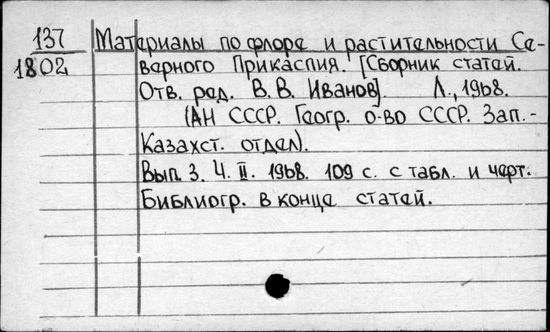 137 Материалы по флоре и растительности Се-
1802 верного Прикаспия. [Сборник статей.
Отв. ред. В. В. Иванов]. Л., 1968.
(АН СССР. Геогр. о-во СССР. Зап.-
Казахст. отдел).
Вып. 3. Ч. II. 1968. 109 с. с табл. и черт.
Библиогр. в конце статей.